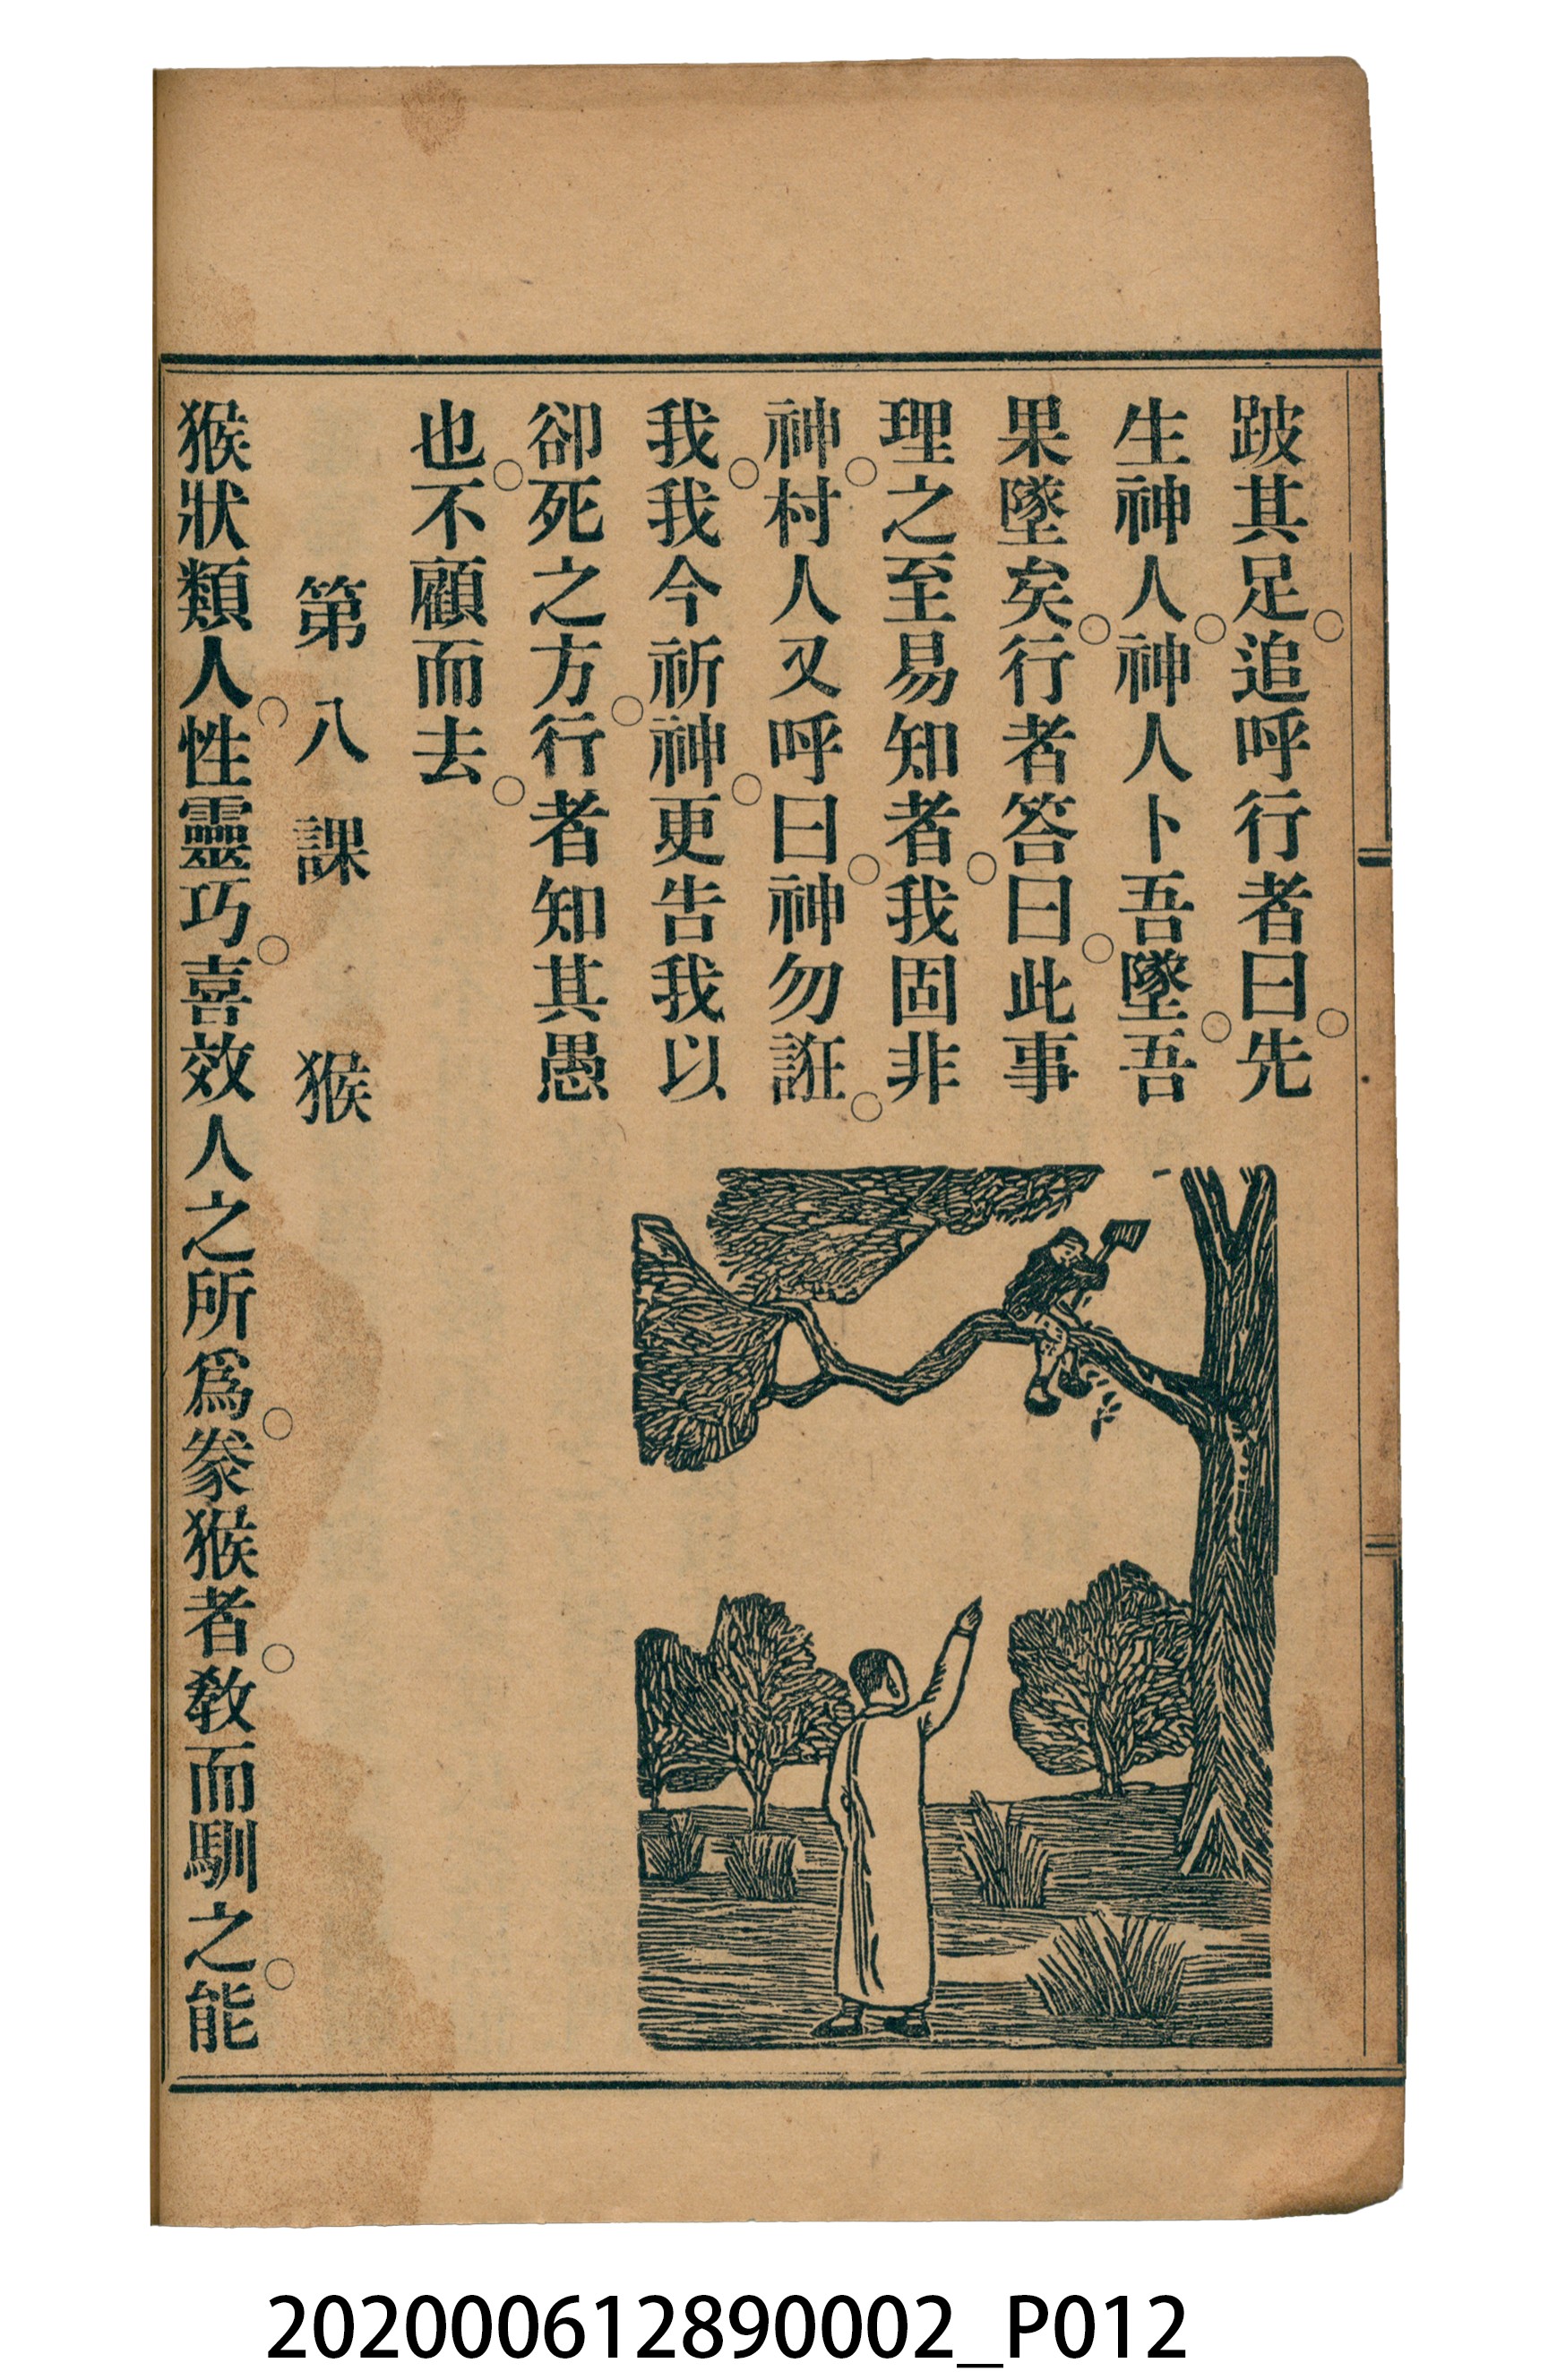 跛其足。追呼行者曰。先
生神人。神人卜吾墜。吾
果墜矣。行者答曰。此事
理之至易知者。我固非
神。村人又呼曰。神勿誑。
我。我今祈神。更告我以
卻死之方。行者知其愚
也。不顧而去。
第八課　猴
猴狀類人。性靈巧。喜效人之所爲。豢猴者。敎而馴之。能
202000612890002_P012